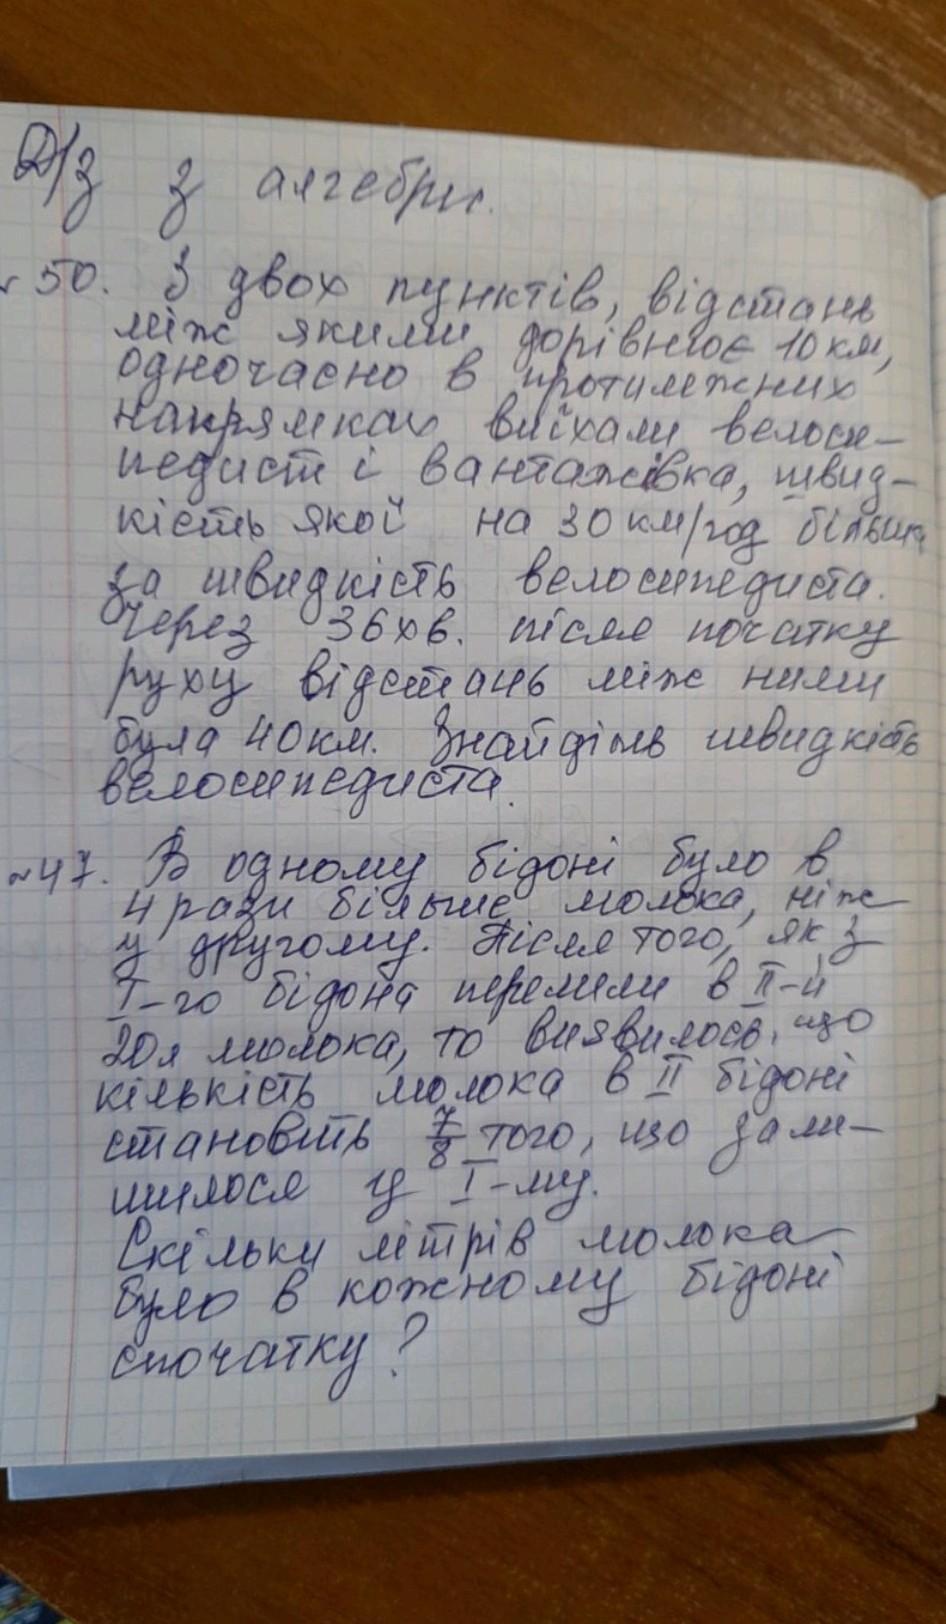 Д/з з алгебри.
50. З двох пунктів, відстань
між якими дорівнює 10 км,
одночасно в протилежних
напрямках виїхали велоси-
педист і вантажівка, швид-
кість якої на 30 км/год більша
за швидкість велосипедиста.
Через 36 хв. після початку
руху відстань між ними
була 40 км. Знайдіть швидкість
велосипедиста.
№47. В одному бідоні було в
4 рази більше молока, ніж
у другому. Після того, як з
I-го бідона перелили в II-й
20л молока, то виявилось, що
кількість молока в II бідоні
становить 7/8 того, що зали-
шилося у I-му.
Скільки літрів молока
було в кожному бідоні
спочатку?